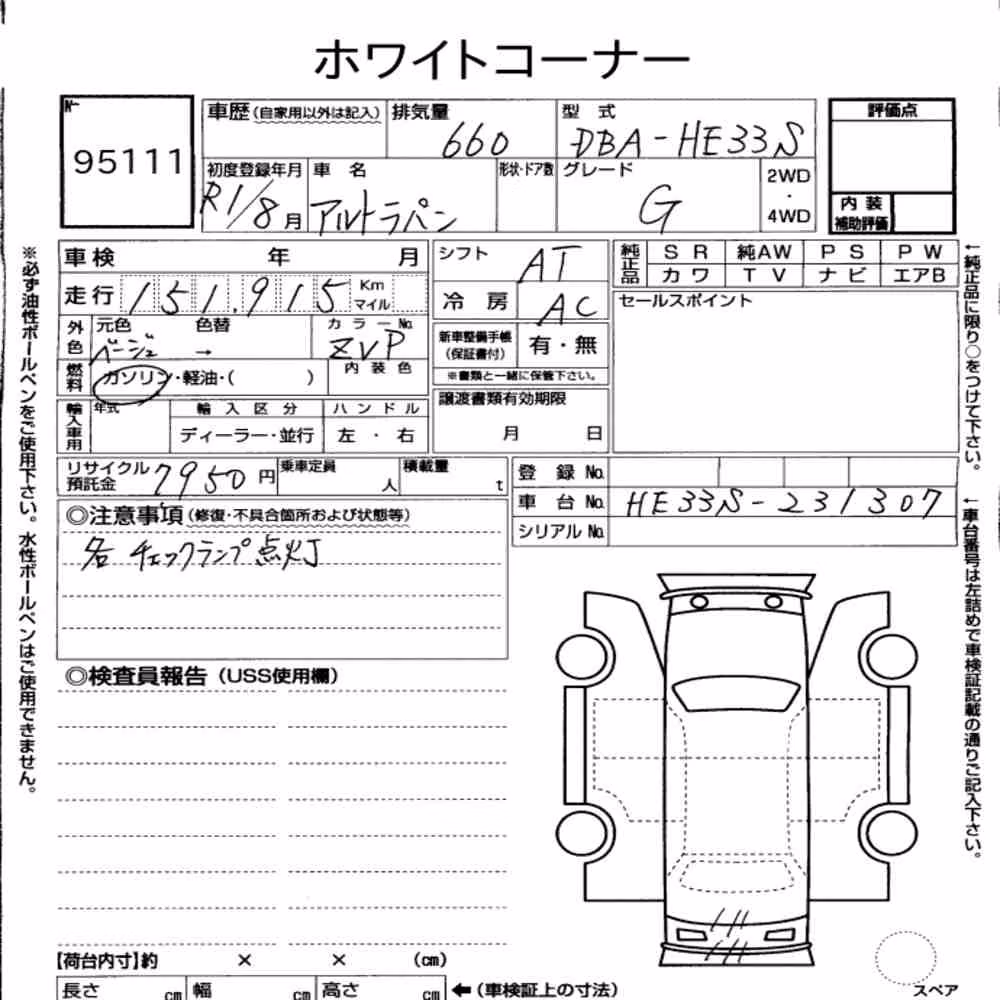 ホワイトコーナー
№
95111
車歴 (自家用以外は記入) 排気量 660 型 式 DBA-HE33S
評価点
初度登録年月 R1/8月 車 名 アルトラパン 形状・ドア数 グレード G 2WD・4WD
内 装
補助評価
車検 年 月
走行 151,915 Km マイル
外色 元色 ベージュ 色替 → カラーNo. ZVP
燃料 ガソリン・軽油・( ) 内装色
輸入車用 年式 輸入区分 ハンドル
ディーラー・並行 左・右
シフト AT
冷 房 AC
新車整備手帳
(保証書付) 有・無
※書類と一緒に保管下さい。
譲渡書類有効期限
月 日
純正品 SR 純AW PS PW
カワ TV ナビ エアB
セールスポイント
リサイクル
預託金 7950円 乗車定員 人 積載量 t
登 録 No.
車 台 No. HE33S-231307
シリアル No.
◎注意事項 (修復・不具合箇所および状態等)
各 チェックランプ点灯
◎検査員報告 (USS使用欄)
【荷台内寸】約 × × (cm)
長さ cm 幅 cm 高さ cm ←(車検証上の寸法)
スペア
※必ず油性ボールペンをご使用下さい。水性ボールペンはご使用できません。
←純正品に限り○をつけて下さい。
←車台番号は左詰めで車検証記載の通りご記入下さい。